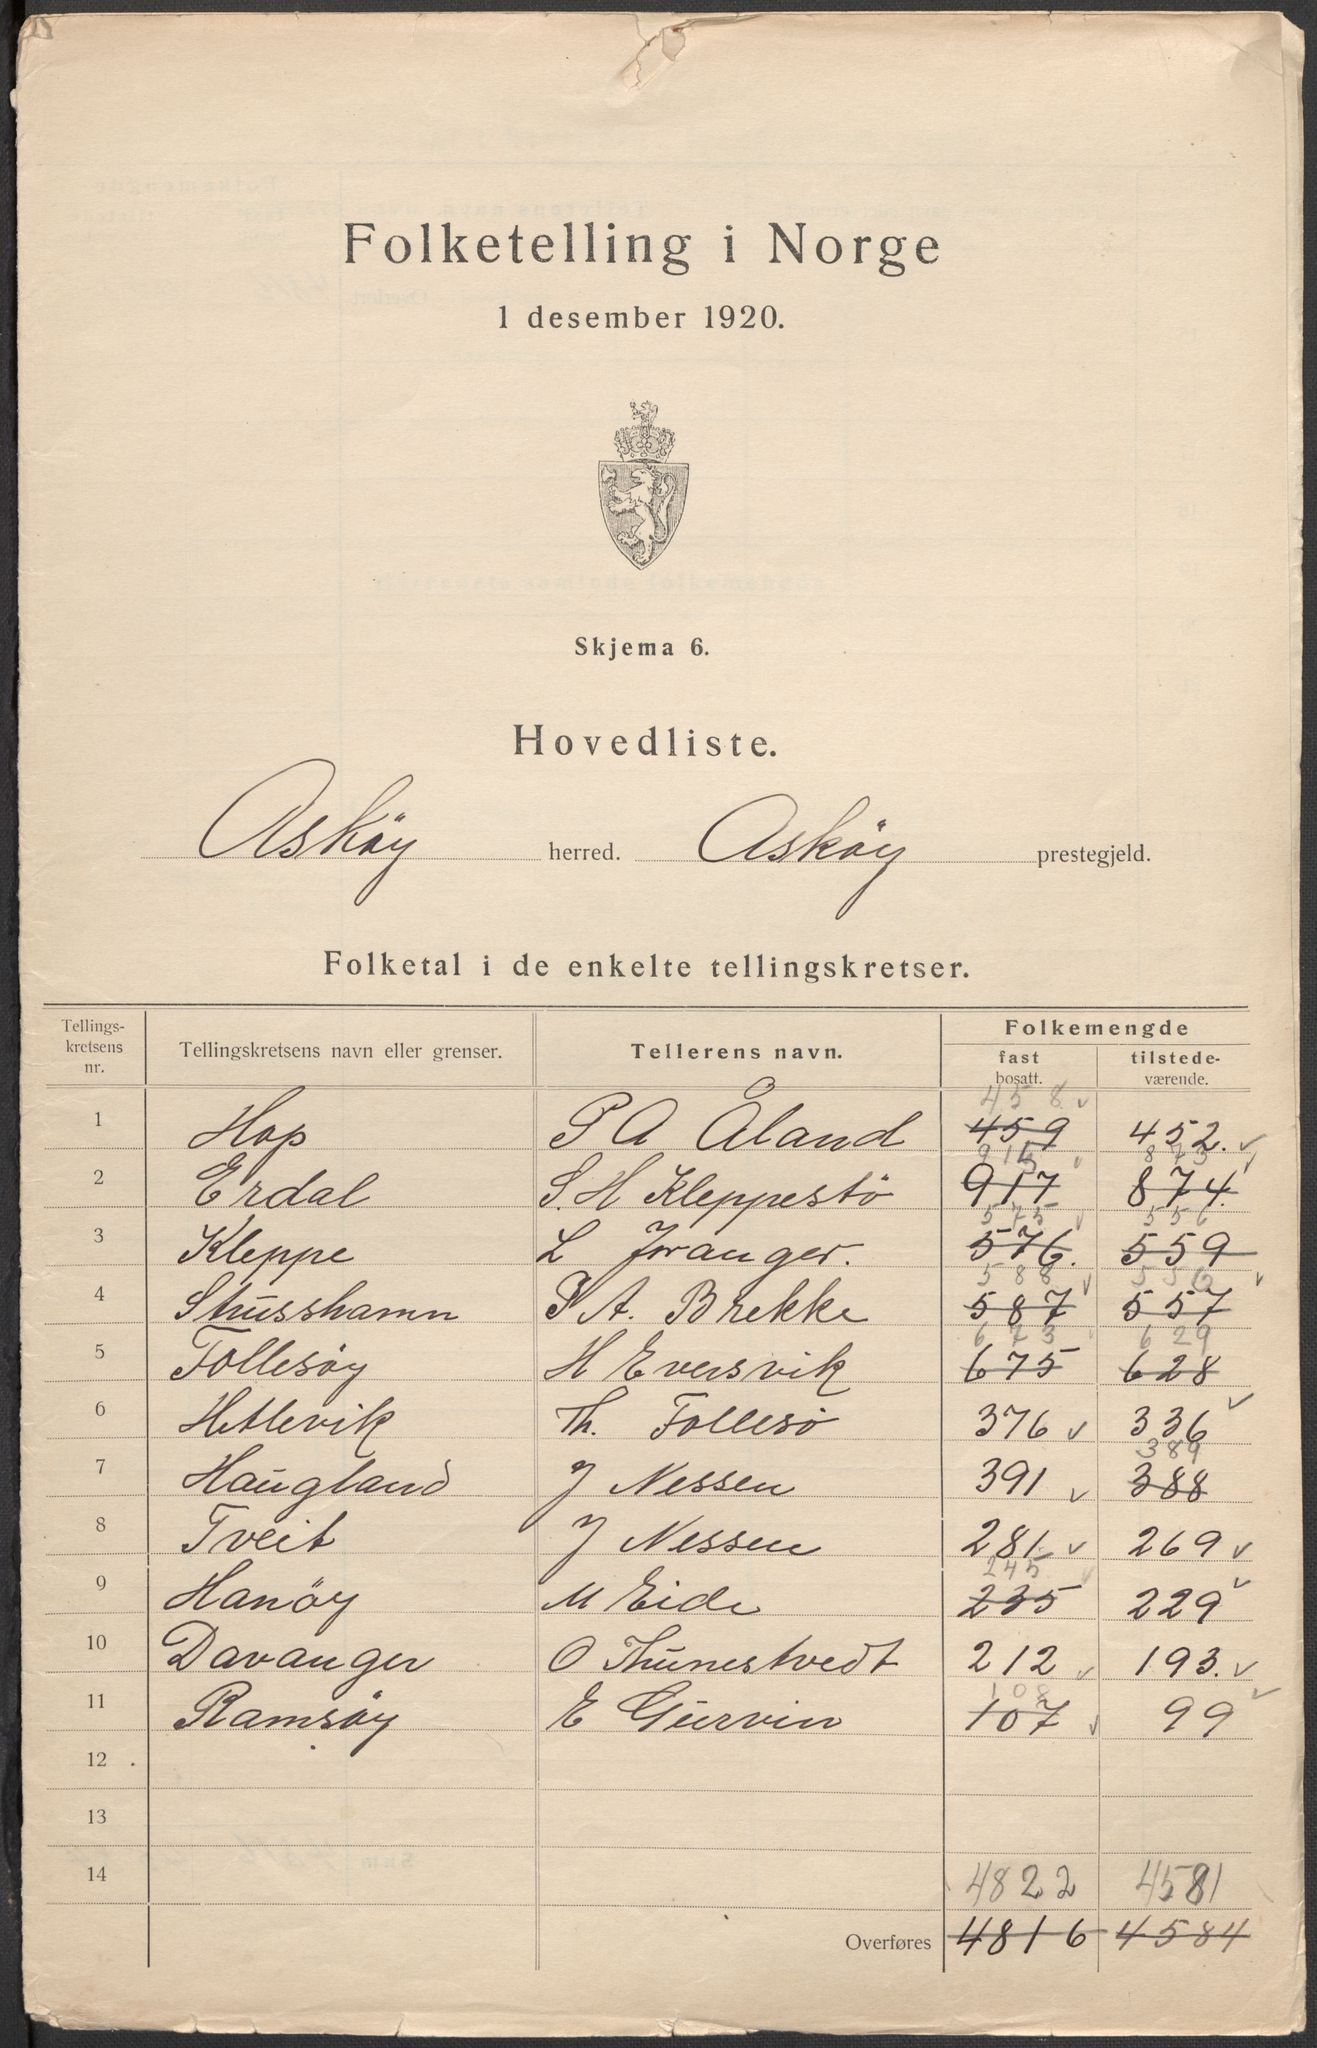 Folketelling i Norge
1 desember 1920.
Skjema 6.
Hovedliste.
Asköy herred. Asköy prestegjeld.
Folketal i de enkelte tellingskretser.
Tellings-
kretsens
nr.
Tellingskretsens navn eller grenser.
Tellerens navn.
Folkemengde
fast
bosatt.
tilstede-
værende.
458
1 Hop P A Åland 459 452.
915 873
2 Erdal S. H Kleppestö 917 874.
575 556
3 Kleppe L Joranger. 576. 559
588 556
4 Strusshamn P A. Brekke 587 557
673 629
5 Follesöy H Eversvik 675 628
6 Hetlevik Th. Follesö 376 336
389
7 Haugland J Nessen 391 388
8 Tveit J Nessen 281 269
245
9 Hanöy M Eide 235 229
10 Davanger O Thunestvedt 212 193.
108
11 Ramsöy E Gurvin 107 99
12
13
14 4822 4581
Overføres 4816 4584